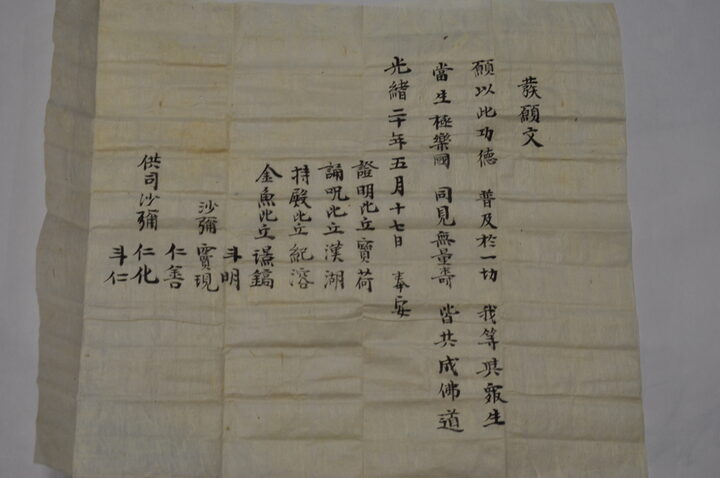 發願文
願以此功德 普及於一切 我等與衆生
當生極樂國 同見無量壽 皆共成佛道
光緖二十年五月十七日 奉安
證明比丘寶荷
誦呪比丘漢湖
持殿比丘紀溶
金魚比丘璟鎬
斗明
沙彌 實現
仁善
供司沙彌 仁化
斗仁